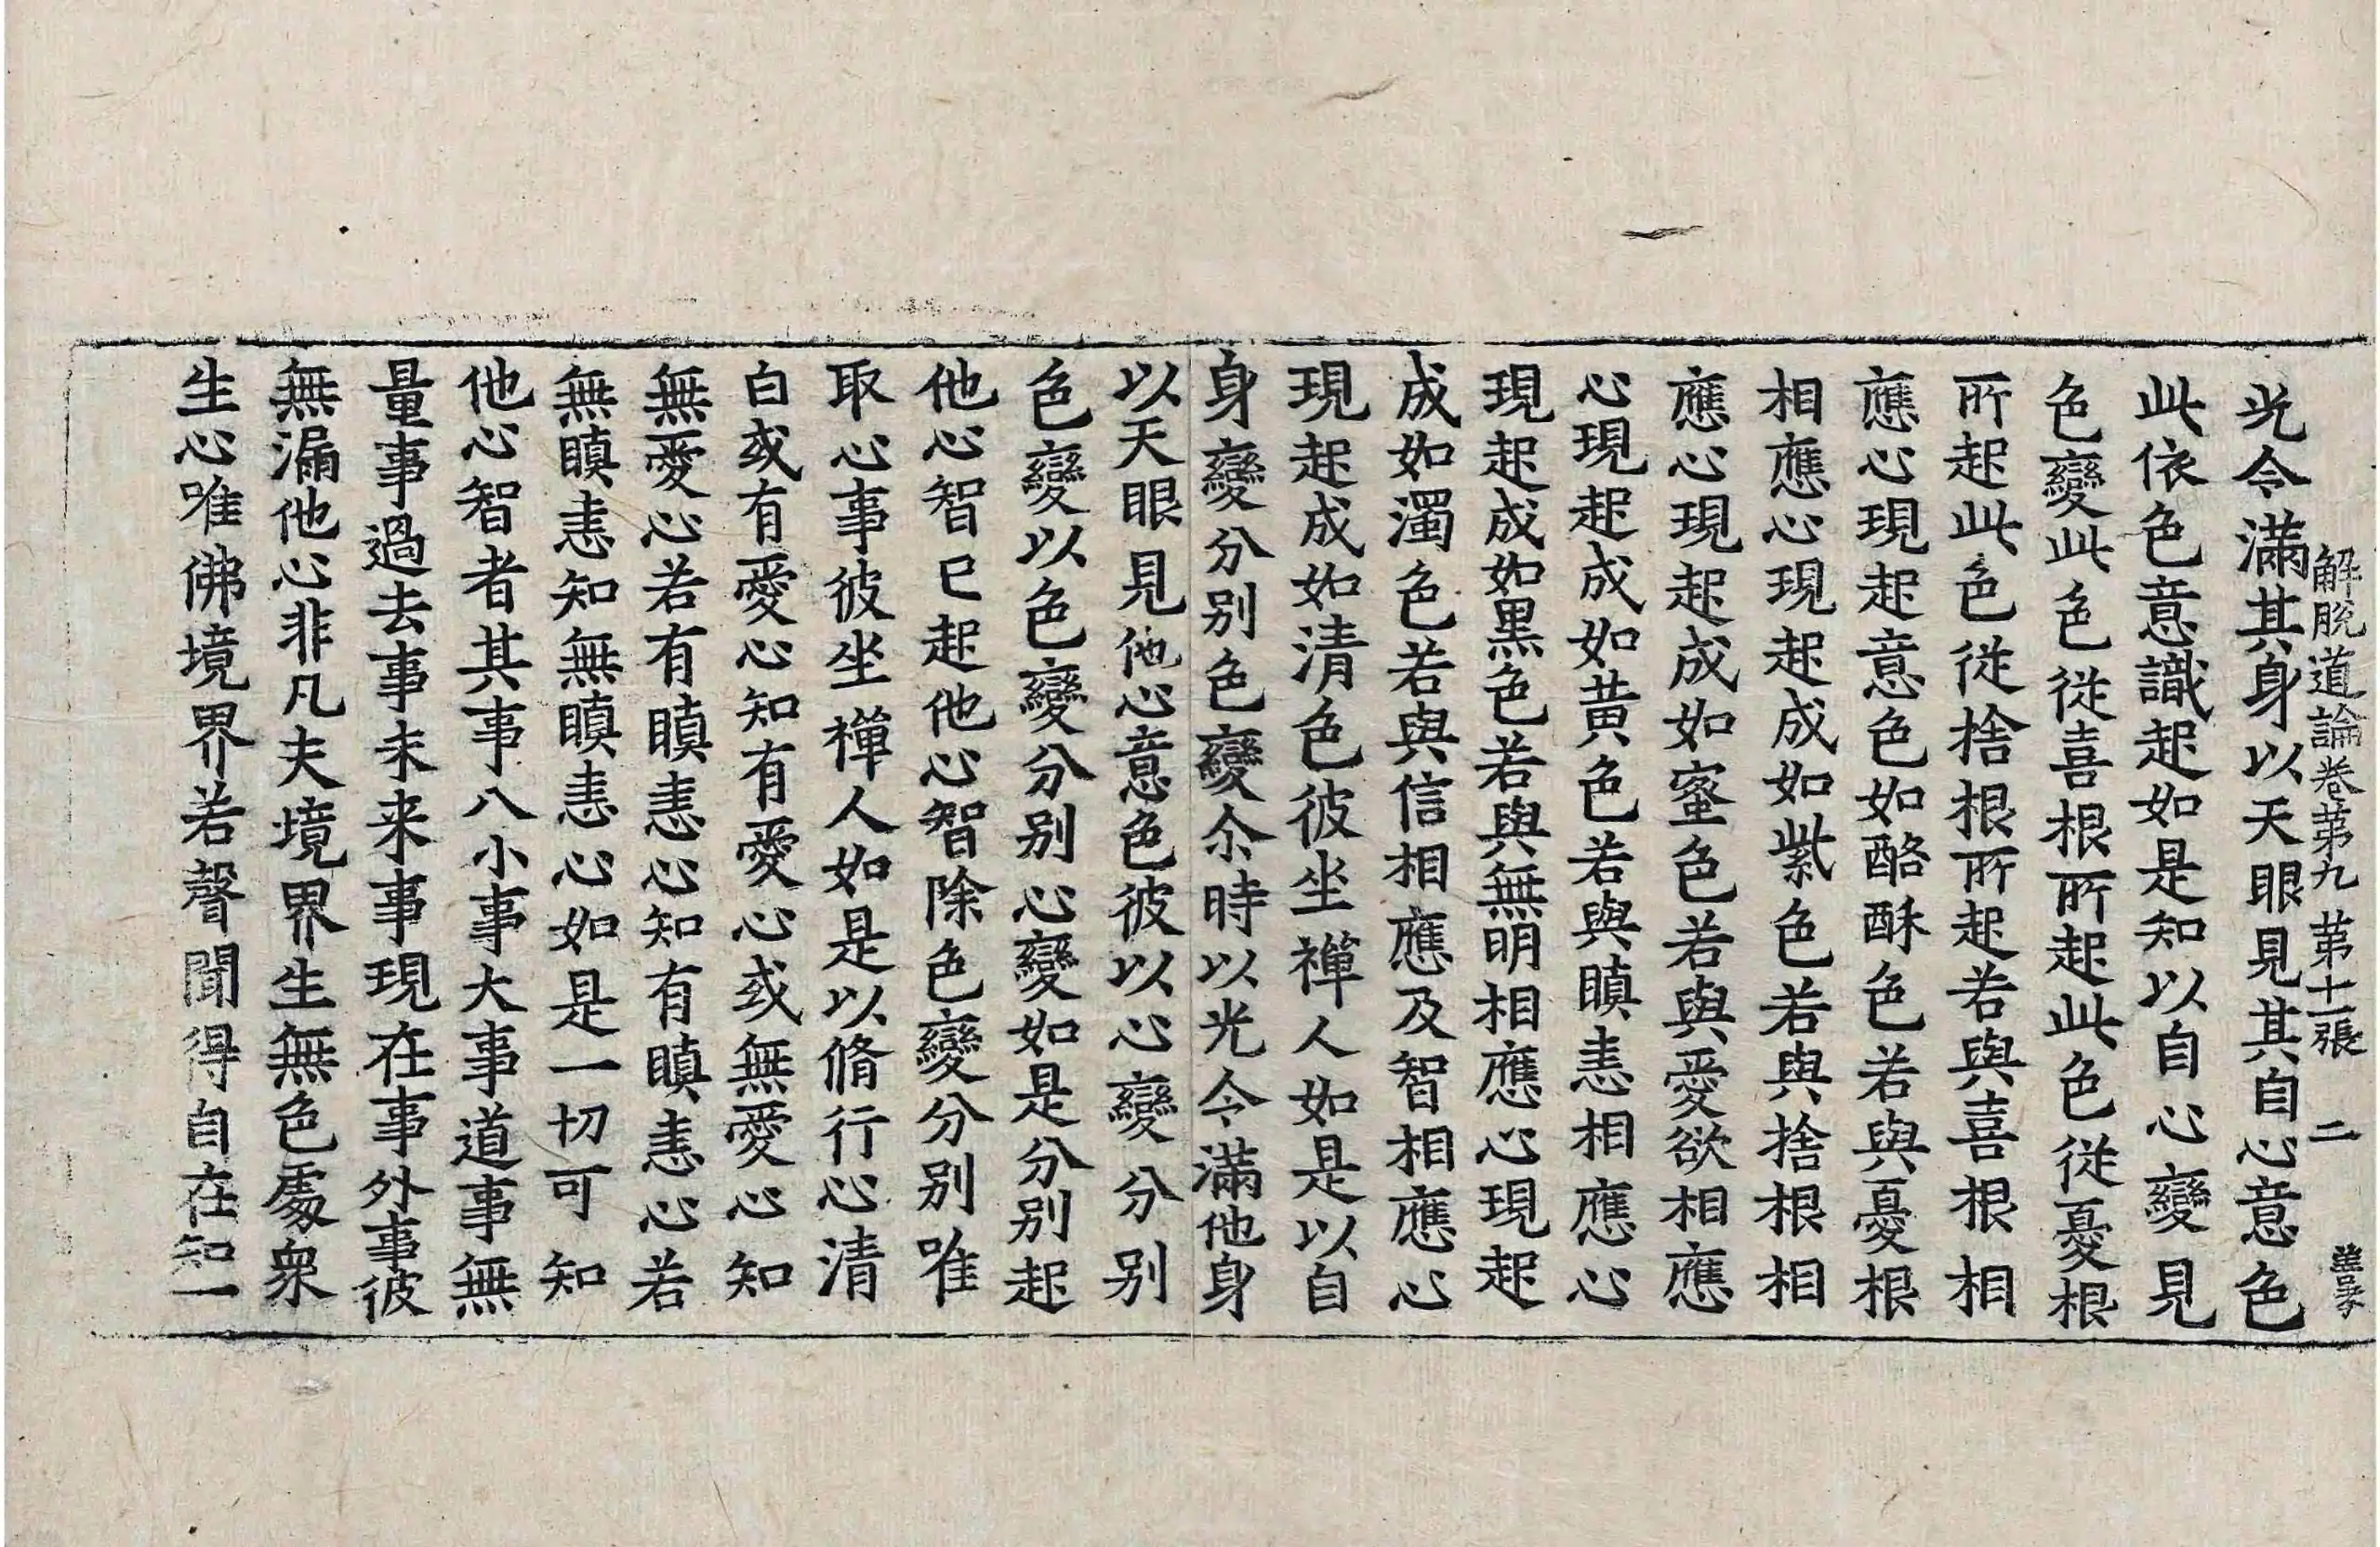 解脫道論卷第九 第十一張 二
光令滿其身以天眼見其自心意色
此依色意識起如是知以自心變見
色變此色從喜根所起此色從憂根
所起此色從捨根所起若與喜根相
應心現起意色如酪酥色若與憂根
相應心現起成如紫色若與捨根相
應心現起成如蜜色若與愛欲相應
心現起成如黃色若與瞋恚相應心
現起成如黑色若與無明相應心現起
成如濁色若與信相應及智相應心
現起成如清色彼坐禪人如是以自
身變分別色變尒時以光令滿他身
以天眼見他心意色彼以心變分別
色變以色變分別心變如是分別起
他心智已起他心智除色變分別唯
取心事彼坐禪人如是以脩行心清
白或有愛心知有愛心或無愛心知
無愛心若有瞋恚心知有瞋恚心若
無瞋恚知無瞋恚心如是一切可知
他心智者其事八小事大事道事無
量事過去事未来事現在事外事彼
無漏他心非凡夫境界生無色處衆
生心唯佛境界若聲聞得自在知一